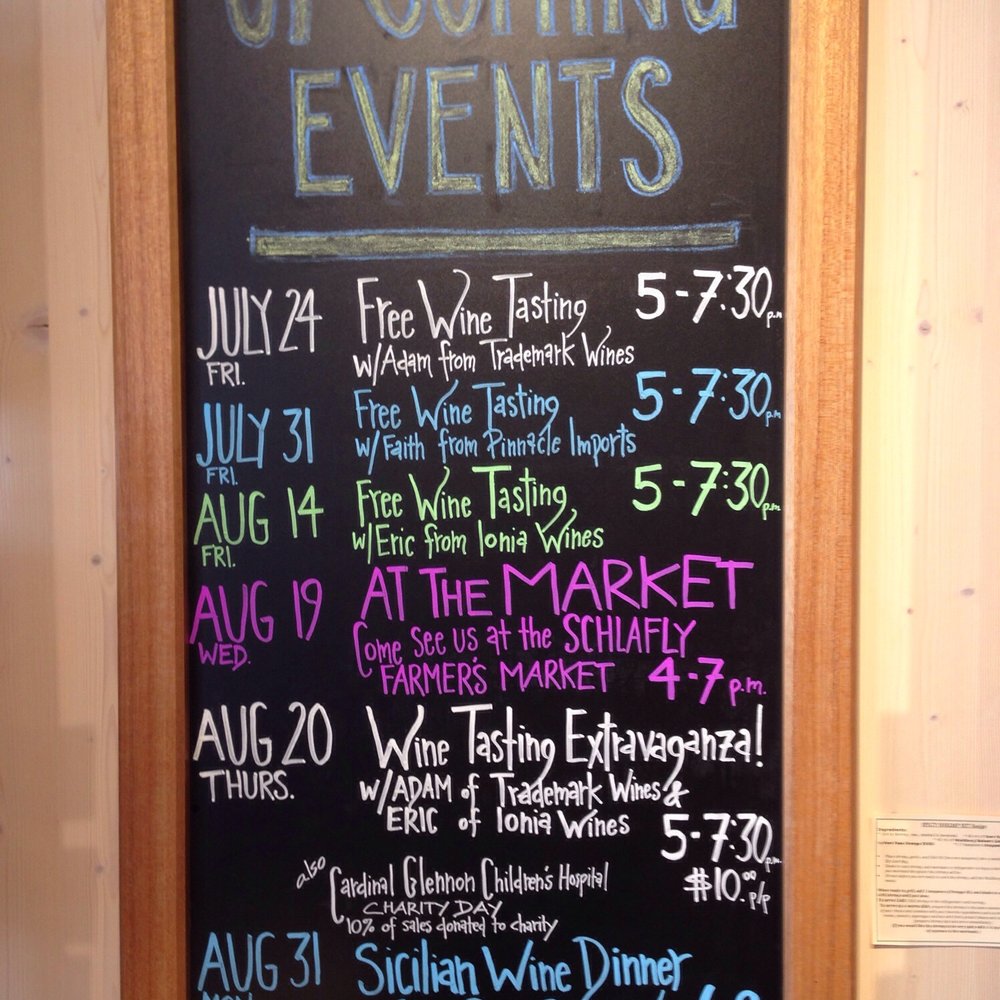 UPCOMING
EVENTS
JULY 24 Free Wine Tasting 5-7:30p.m
FRI. w/Adam from Trademark Wines
JULY 31 Free Wine Tasting 5-7:30p.m
FRI. w/Faith from Pinnacle Imports
AUG 14 Free Wine Tasting 5-7:30p.m
FRI. w/Eric from Ionia Wines
AUG 19 AT THE MARKET
WED. Come see us at the SCHLAFLY
FARMER'S MARKET 4-7 p.m.
AUG 20 Wine Tasting Extravaganza!
THURS. w/ADAM of Trademark Wines &
ERIC of Ionia Wines
5-7:30p.m
$10.00 p/p
also Cardinal Glennon Children's Hospital
CHARITY DAY
10% of sales donated to charity
AUG 31 Sicilian Wine Dinner
MON.